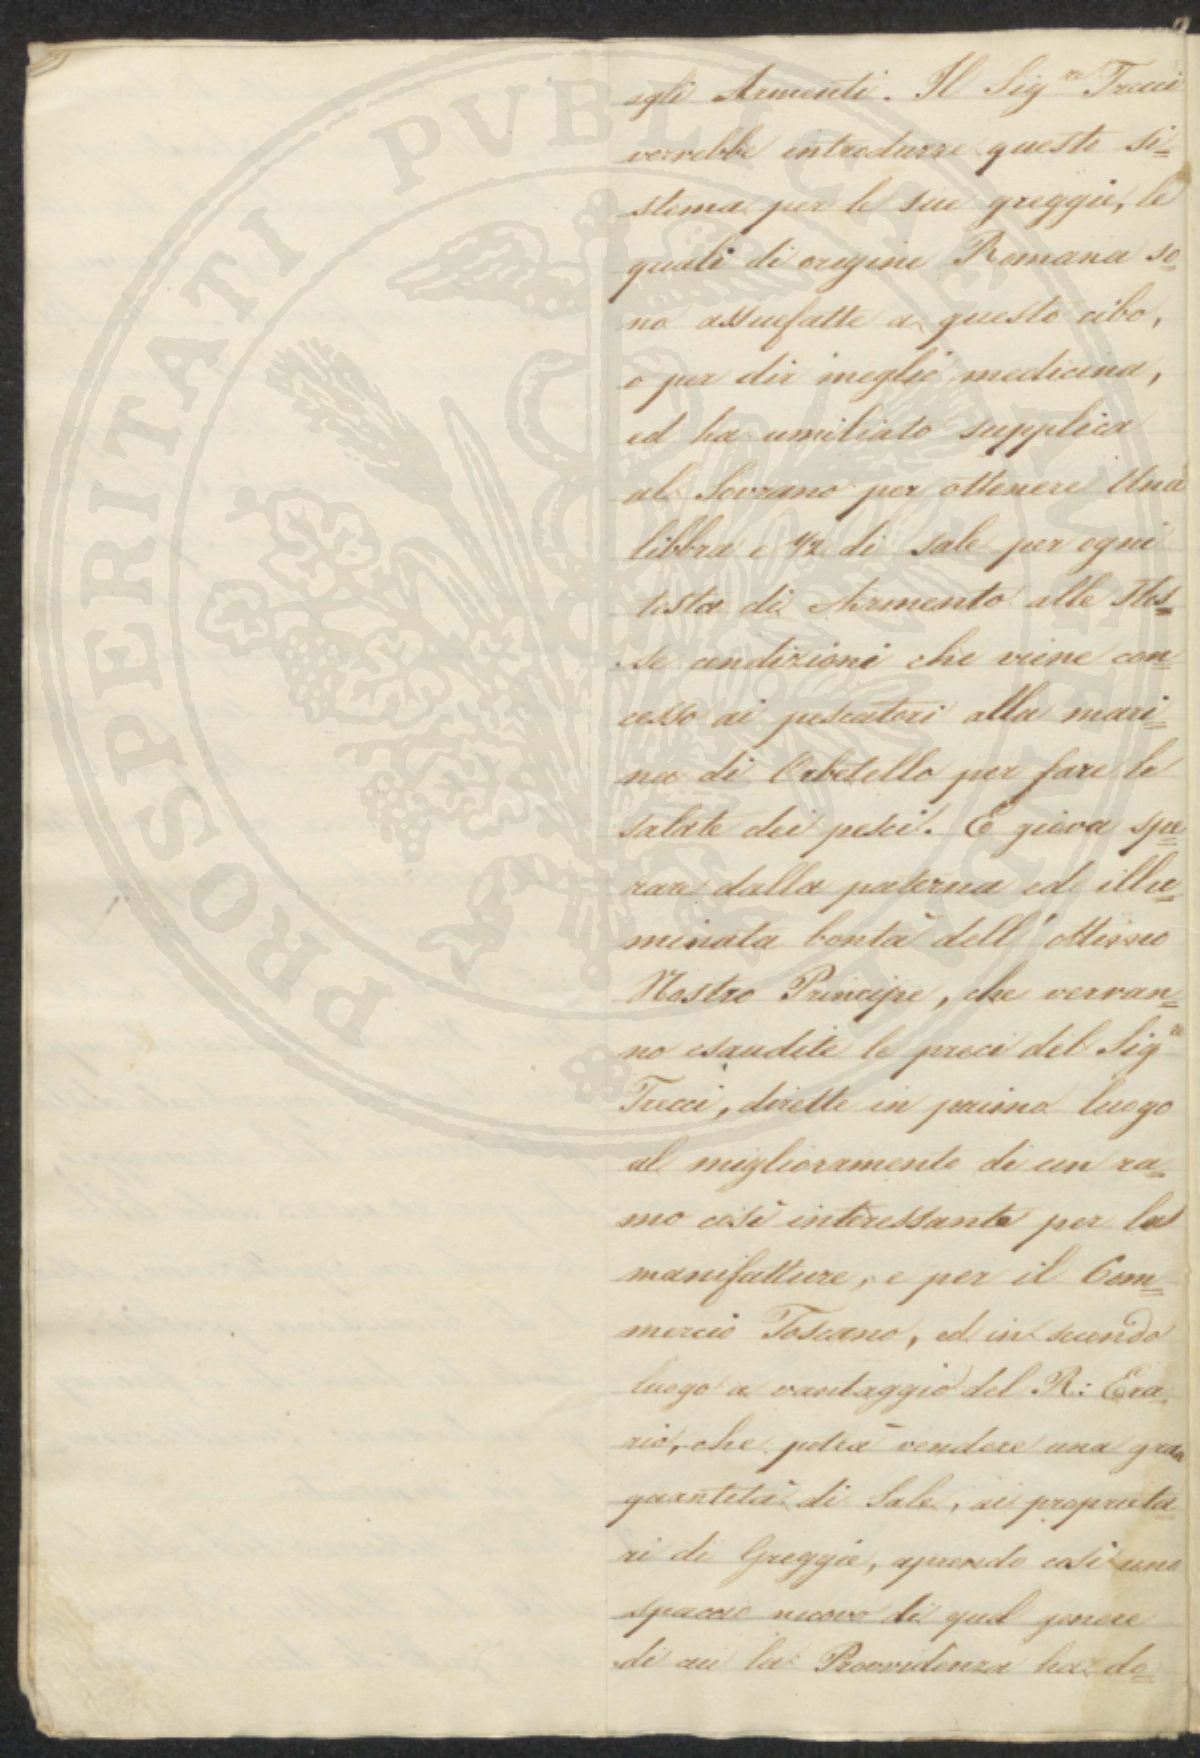 agli Armenti. Il Sig.re Trecci
vorrebbe introdurre questo si=
stema per le sue greggie, le
quali di origine Romana so=
no assuefatte a questo cibo,
o per dir meglio medicina,
ed ha umiliato supplica
al Sovrano per ottenere Una
libbra e 1/2 di sale per ogni
testa di Armento alle stes=
se condizioni che viene con=
cesso ai pescatori alla mari=
na di Orbetello per fare le
salate dei pesci. E giova spe=
rare dalla paterna ed illu=
minata bontà dell' ottimo
Nostro Principe, che verran=
no esaudite le preci del Sig.re
Trecci, dirette in primo luogo
al miglioramento di un ra=
mo così interessante per le
manifatture, e per il Com=
mercio Toscano, ed in secondo
luogo a vantaggio del R: Era=
rio, che potrà vendere una gran
quantità di Sale, ai proprieta=
ri di Greggie, aprendo così uno
spaccio nuovo di quel genere
di cui la Provvidenza ha do=
PROSPERITATI PUBLICAE